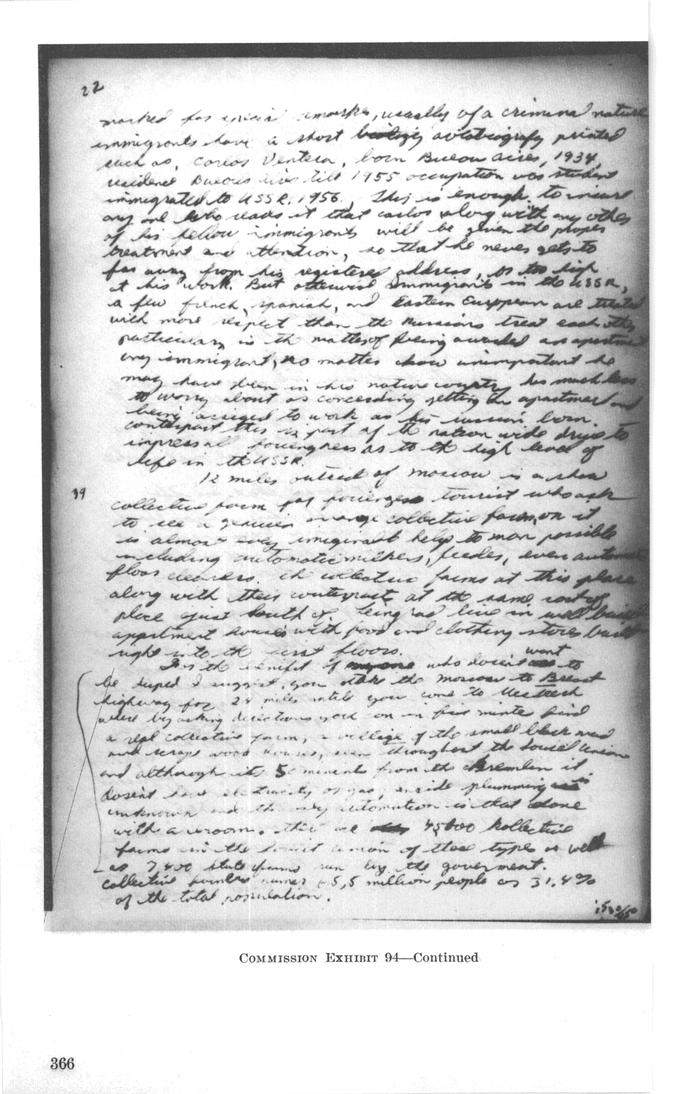 22
marked for special remarks, usually of a criminal nature
immigrants have a short autobiografy printed
such as, Carlos Ventera, born Buenou aires, 1934,
residence Buenous aires till 1955 occupation was student
immigrated to USSR. 1956. This is enough to insure
any one who reads it that carlos along with any other
of his fellow immigrants will be given the proper
treatment and attention, so that he never gets to
far away from his registered address, or too high
at his work. But otherwise immigrants in the USSR,
a few french, spanish, and Eastern European are treated
with more respect than the Russians treat each other
particulary in the matter of being awarded an apartment
any immigrant, no matter how unimportant he
may have been in his native country has much less
to worry about as concerding getting an apartment and
being assiged to work as his russian born.
conterpart this is part of the nation wide drive to
impress all foriengners as to the high level of
life in the USSR.
12 miles outside of moscow is a show
39
collective farm for foriengers tourist who ask
to see a genuine collective farm, on it
is almost every imiginabl help to man possible
including automatic milkers, feedes, even automatic
floor cleaners. collective farms at this place
along with their conterparts at the same sort of
place just South of Leningrad live in well built
appartment houses with food and clothing stores built
right into the first floors.
For the benifit of who dosent want to
be duped I suggest, you take the moscow to Brest
highway for 24 miles until you come to
where by asking directions you can in five minutes find
a real collective farm, a village of the small black mud
and wood houses, seen throughout the Soviet Union
and although its 50 minents from the Kremlen it
dosent have electricity or gas, inside plumming is
unknown and the only automation is that done
with a broom. there are 45,000 kollective
farms in the Soviet union of these types as well
as 7,400 state farms run by the goverment.
collective farmers numer 65,5 million people or 31.4%
of the total population.
COMMISSION EXHIBIT 94—Continued
366